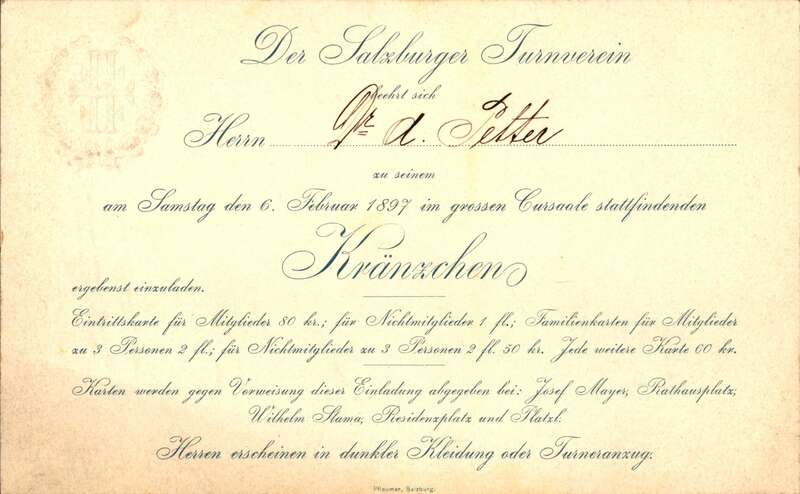 Der Salzburger Turnverein
beehrt sich
Herrn Dr A. Petter
zu seinem
am Samstag den 6. Februar 1897 im grossen Cursaale stattfindenden
Kränzchen
ergebenst einzuladen.
Eintrittskarte für Mitglieder 80 kr.; für Nichtmitglieder 1 fl.; Familienkarten für Mitglieder
zu 3 Personen 2 fl.; für Nichtmitglieder zu 3 Personen 2 fl. 50 kr. Jede weitere Karte 60 kr.
Karten werden gegen Vorweisung dieser Einladung abgegeben bei: Josef Mayer, Rathausplatz;
Wilhelm Slama, Residenzplatz und Platzl.
Herren erscheinen in dunkler Kleidung oder Turneranzug.
Pfleumer, Salzburg.